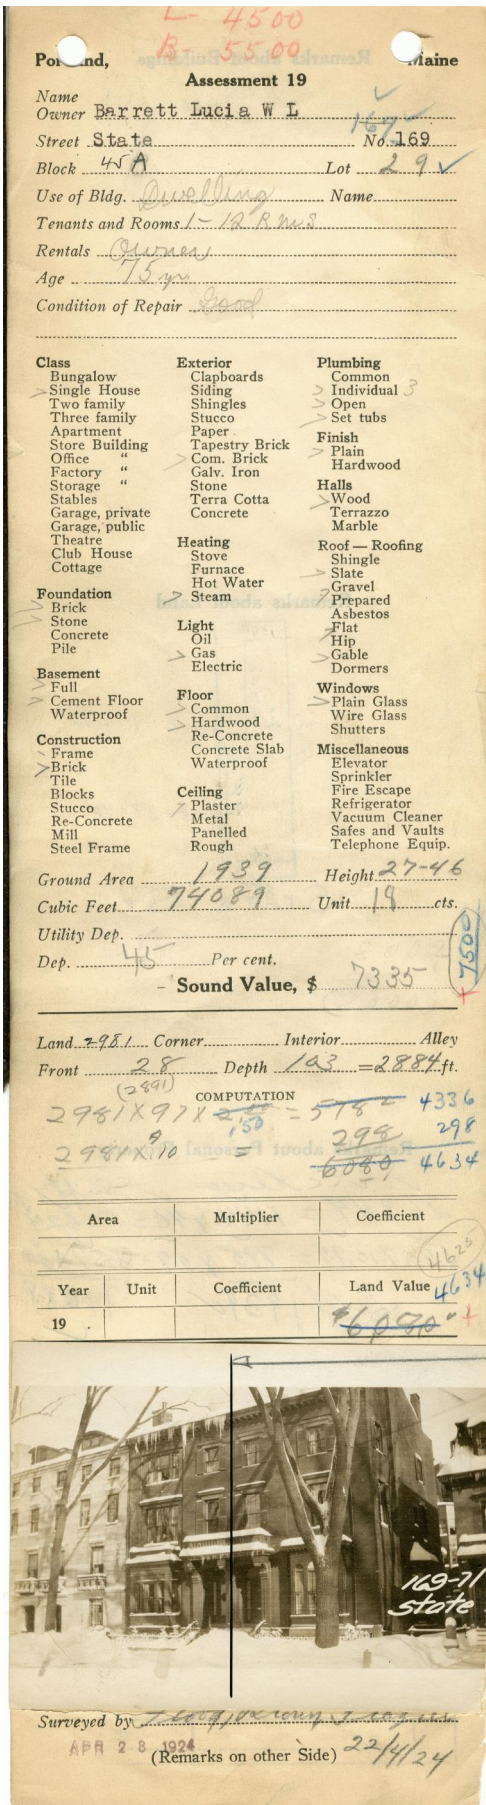 L- 4500
B- 5500
Portland, Maine
Assessment 19
Name
Owner Barrett Lucia W L
167
Street State No. 169
Block 45 A Lot 29
Use of Bldg. Dwelling Name
Tenants and Rooms 1-12 Rms
Rentals Owner
Age 75 yr
Condition of Repair Good
Class
Bungalow
Single House
Two family
Three family
Apartment
Store Building
Office "
Factory "
Storage "
Stables
Garage, private
Garage, public
Theatre
Club House
Cottage
Foundation
Brick
Stone
Concrete
Pile
Basement
Full
Cement Floor
Waterproof
Construction
Frame
Brick
Tile
Blocks
Stucco
Re-Concrete
Mill
Steel Frame
Exterior
Clapboards
Siding
Shingles
Stucco
Paper
Tapestry Brick
Com. Brick
Galv. Iron
Stone
Terra Cotta
Concrete
Heating
Stove
Furnace
Hot Water
Steam
Light
Oil
Gas
Electric
Floor
Common
Hardwood
Re-Concrete
Concrete Slab
Waterproof
Ceiling
Plaster
Metal
Panelled
Rough
Plumbing
Common
Individual 3
Open
Set tubs
Finish
Plain
Hardwood
Halls
Wood
Terrazzo
Marble
Roof — Roofing
Shingle
Slate
Gravel
Prepared
Asbestos
Flat
Hip
Gable
Dormers
Windows
Plain Glass
Wire Glass
Shutters
Miscellaneous
Elevator
Sprinkler
Fire Escape
Refrigerator
Vacuum Cleaner
Safes and Vaults
Telephone Equip.
Ground Area 1939 Height 27-46
Cubic Feet 74089 Unit 18 cts.
Utility Dep.
Dep. 45 Per cent.
+7500
Sound Value, $ 7335
Land 2981 Corner Interior Alley
Front 28 Depth 103 = 2884 ft.
(2891)
COMPUTATION
2981 X 97 X 1.50 = 4336
2981 X 10 = 298 298
6080 4634
Area Multiplier Coefficient
4625
Year Unit Coefficient Land Value 4634
19 $6080
169-71
State
Surveyed by
APR 28 1924
(Remarks on other Side) 22/4/24